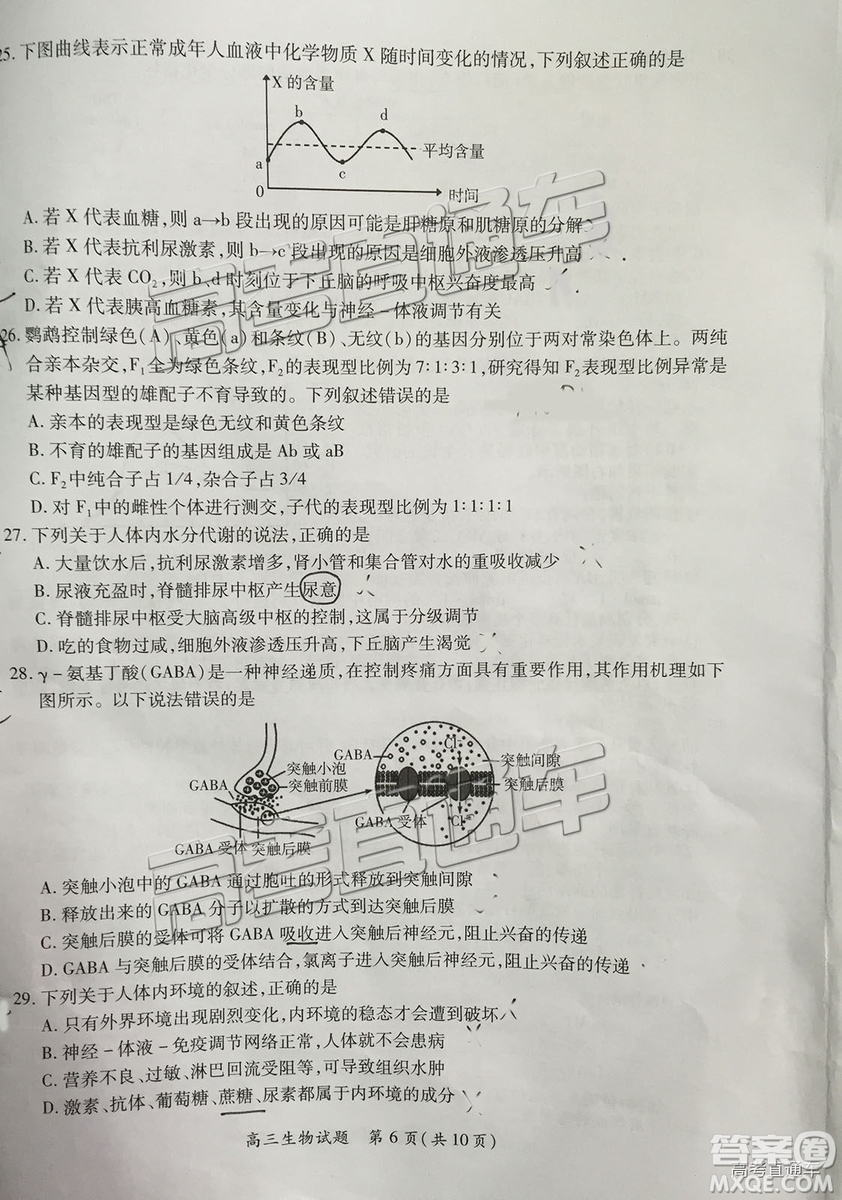 25. 下图曲线表示正常成年人血液中化学物质 X 随时间变化的情况，下列叙述正确的是
X 的含量
b
d
平均含量
a
c
0
时间
A. 若 X 代表血糖，则 a→b 段出现的原因可能是肝糖原和肌糖原的分解
B. 若 X 代表抗利尿激素，则 b→c 段出现的原因是细胞外液渗透压升高
C. 若 X 代表 CO₂，则 b、d 时刻位于下丘脑的呼吸中枢兴奋度最高
D. 若 X 代表胰高血糖素，其含量变化与神经－体液调节有关
26. 鹦鹉控制绿色(A)、黄色(a)和条纹(B)、无纹(b)的基因分别位于两对常染色体上。两纯
合亲本杂交，F₁全为绿色条纹，F₂的表现型比例为 7∶1∶3∶1，研究得知 F₂表现型比例异常是
某种基因型的雄配子不育导致的。下列叙述错误的是
A. 亲本的表现型是绿色无纹和黄色条纹
B. 不育的雄配子的基因组成是 Ab 或 aB
C. F₂中纯合子占 1/4，杂合子占 3/4
D. 对 F₁中的雌性个体进行测交，子代的表现型比例为 1∶1∶1∶1
27. 下列关于人体内水分代谢的说法，正确的是
A. 大量饮水后，抗利尿激素增多，肾小管和集合管对水的重吸收减少
B. 尿液充盈时，脊髓排尿中枢产生尿意
C. 脊髓排尿中枢受大脑高级中枢的控制，这属于分级调节
D. 吃的食物过咸，细胞外液渗透压升高，下丘脑产生渴觉
28. γ－氨基丁酸(GABA)是一种神经递质，在控制疼痛方面具有重要作用，其作用机理如下
图所示。以下说法错误的是
GABA
突触小泡
突触前膜
GABA 受体 突触后膜
GABA
Cl⁻
突触间隙
突触后膜
GABA 受体
Cl⁻
A. 突触小泡中的 GABA 通过胞吐的形式释放到突触间隙
B. 释放出来的 GABA 分子以扩散的方式到达突触后膜
C. 突触后膜的受体可将 GABA 吸收进入突触后神经元，阻止兴奋的传递
D. GABA 与突触后膜的受体结合，氯离子进入突触后神经元，阻止兴奋的传递
29. 下列关于人体内环境的叙述，正确的是
A. 只有外界环境出现剧烈变化，内环境的稳态才会遭到破坏
B. 神经－体液－免疫调节网络正常，人体就不会患病
C. 营养不良、过敏、淋巴回流受阻等，可导致组织水肿
D. 激素、抗体、葡萄糖、蔗糖、尿素都属于内环境的成分
高三生物试题 第 6 页(共 10 页)
高考直通车
高考直通车
答案圈
高考直通车
MXQE.COM